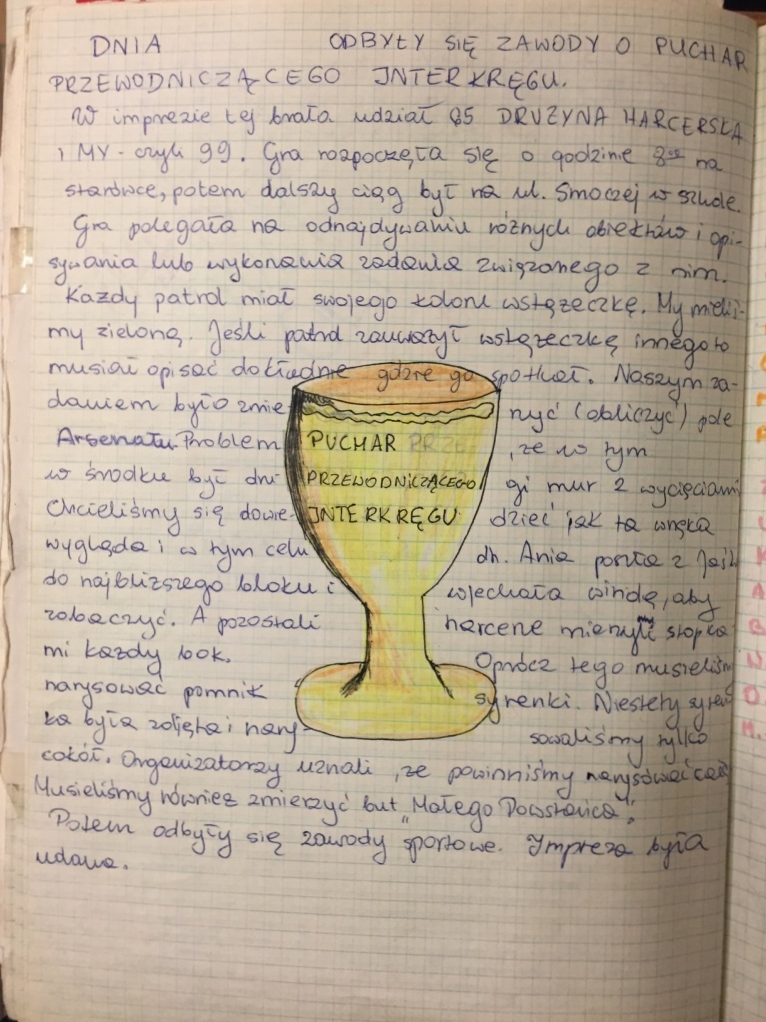 DNIA ODBYŁY SIĘ ZAWODY O PUCHAR
PRZEWODNICZĄCEGO INTERKRĘGU.
W imprezie tej brała udział 65 DRUŻYNA HARCERSKA
i MY - czyli 99. Gra rozpoczęła się o godzinie 8⁰⁰ na
starówce, potem dalszy ciąg był na ul. Smoczej w szkole.
Gra polegała na odnajdywaniu różnych obiektów i opi-
sywania lub wykonania zadania związanego z nim.
Każdy patrol miał swojego koloru wstążeczkę. My mieliś-
my zieloną. Jeśli patrol zauważył wstążeczkę innego to
musiał opisać dokładnie gdzie go spotkał. Naszym za-
daniem było zmie nyć (obliczyć) pole
Arsenału. Problem , że w tym
w środku był dru gi mur z wycięciami
Chcieliśmy się dowie- dzieć jak ta wnęka
wygląda i w tym celu dh. Ania poszła z
do najbliższego bloku i wjechała windą, aby
zobaczyć. A pozostali harcerze mierzyli stopka
mi każdy bok. Oprócz tego musieliśm
narysować pomnik syrenki. Niestety syren
ka była zdjęta i nary- sowaliśmy tylko
cokół. Organizatorzy uznali, że powinniśmy narysować całą
Musieliśmy również zmierzyć but „Małego Powstańca".
Potem odbyły się zawody sportowe. Impreza była
udana.
PUCHAR PRZE
PRZEWODNICZĄCEGO
INTERKRĘGU